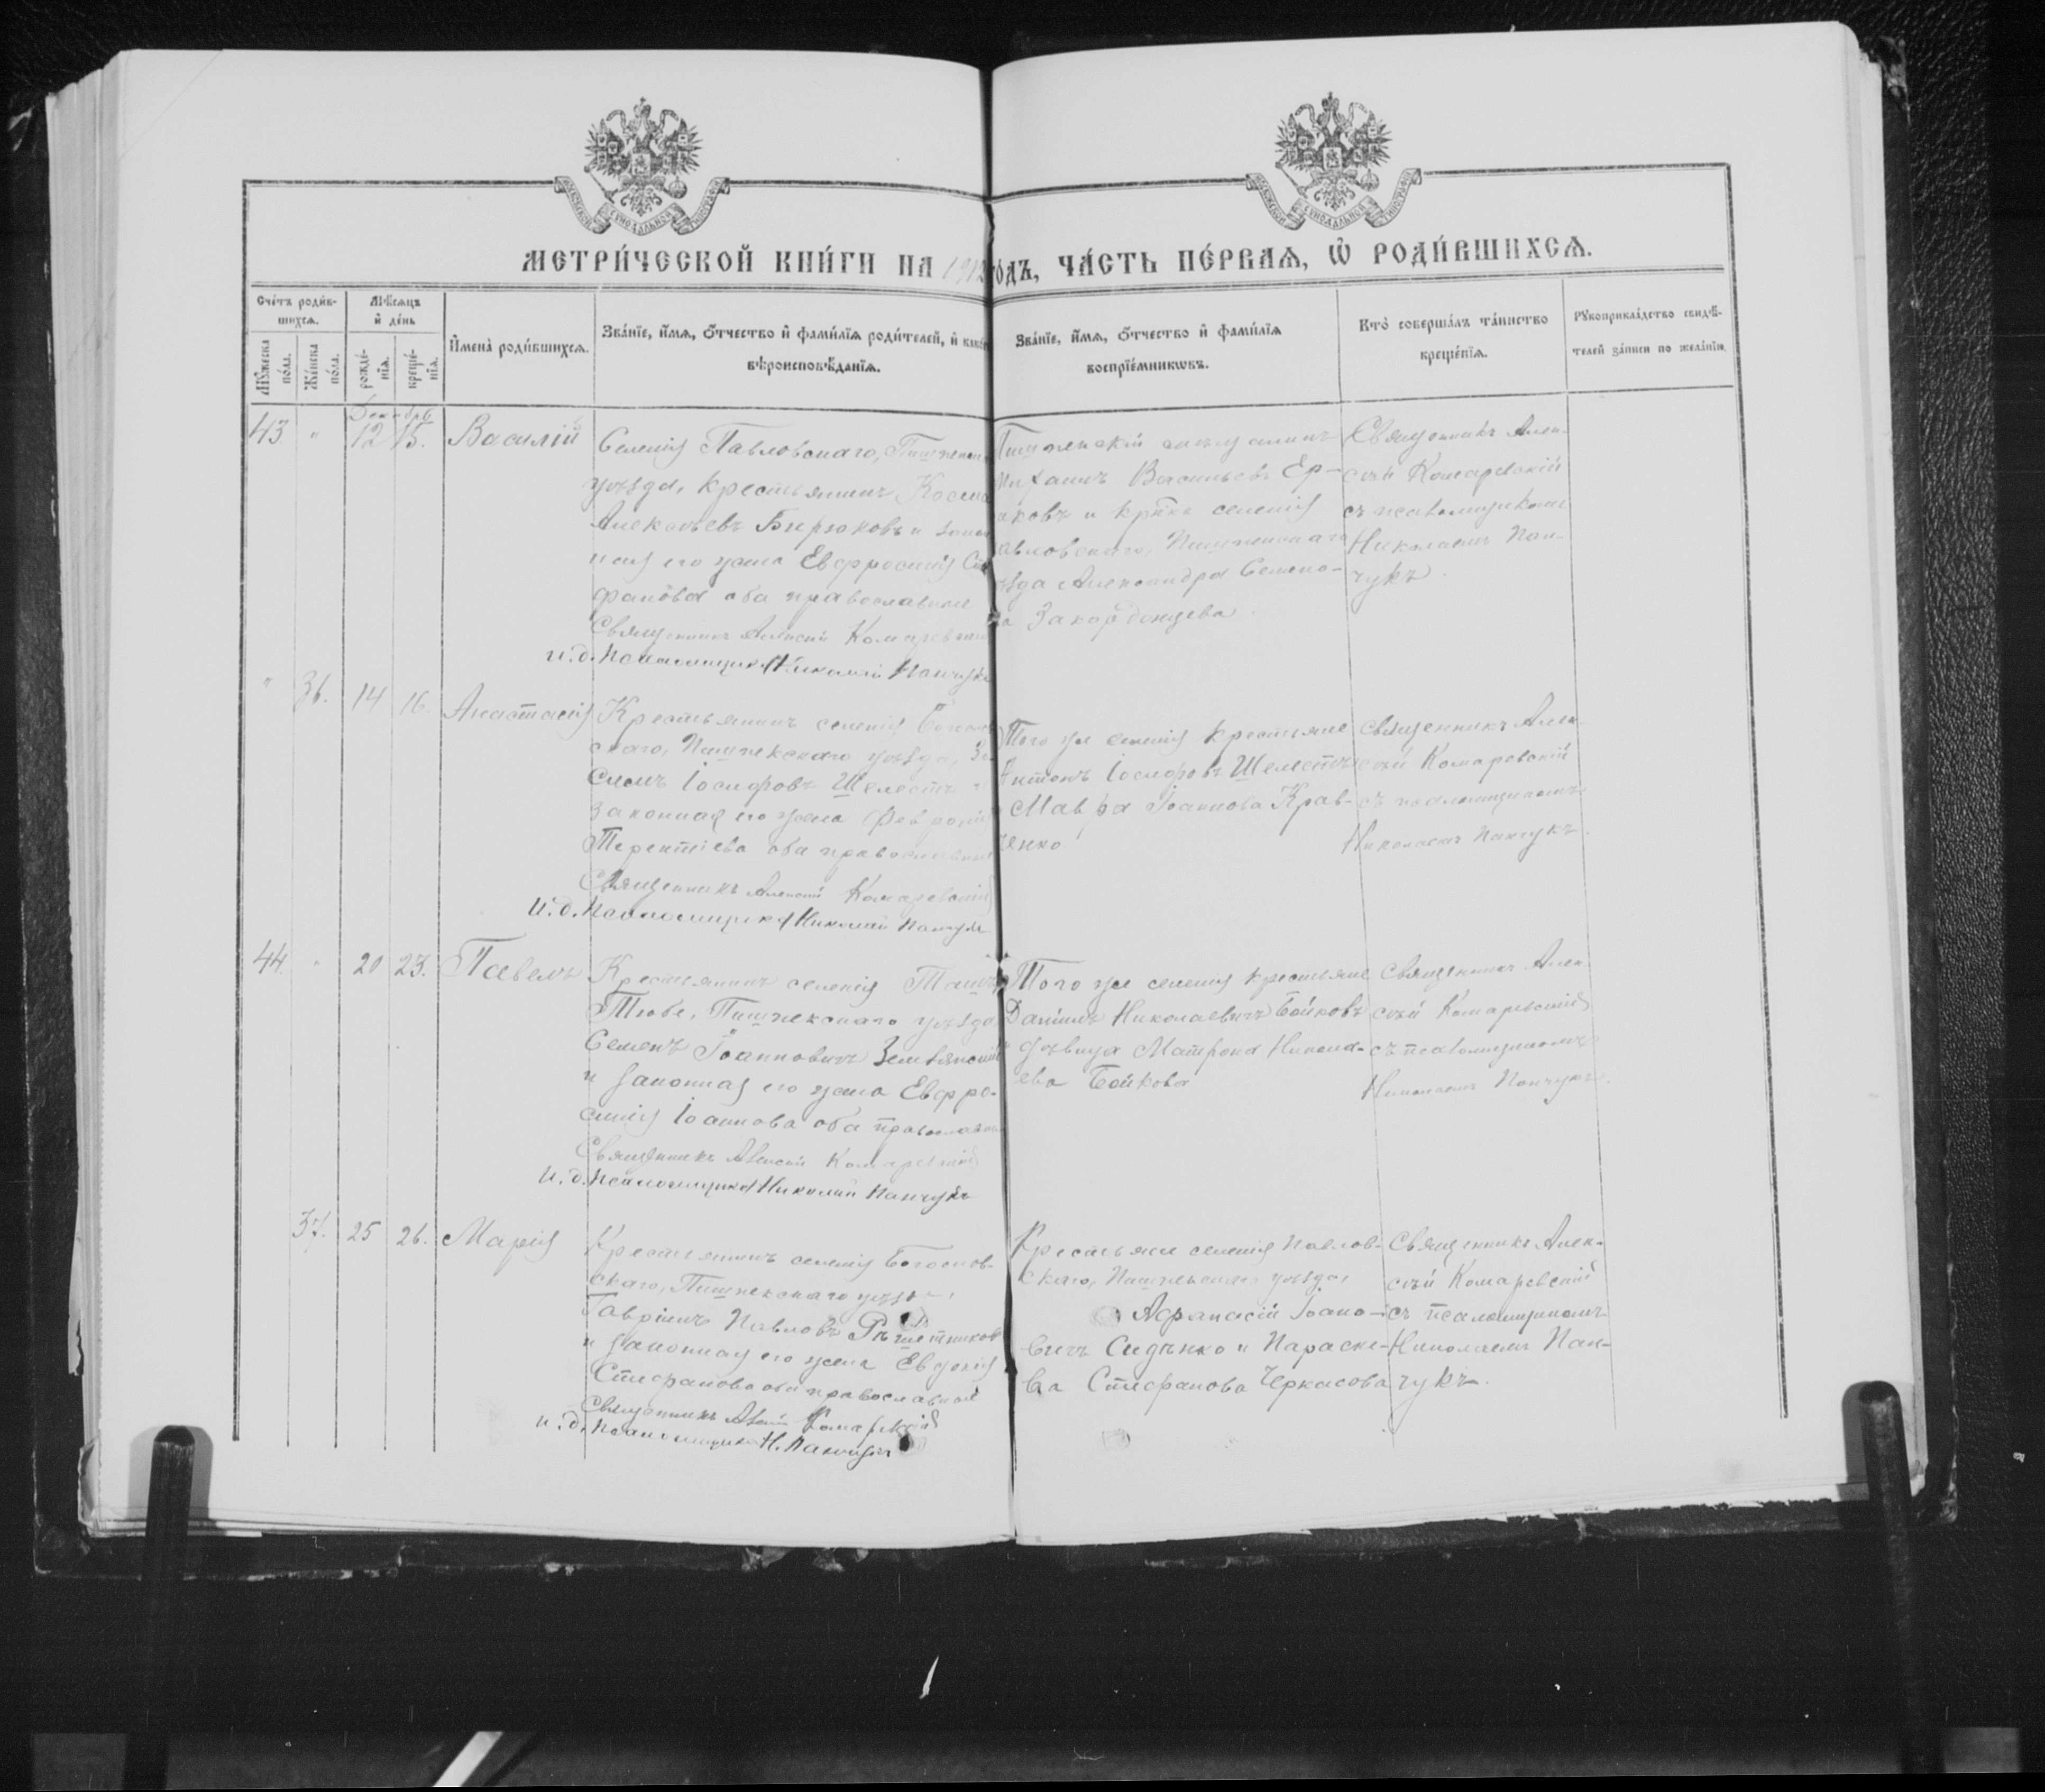 МОСКОВСКОЙ СѴНОДАЛЬНОЙ ТИПОГРАФІИ
МОСКОВСКОЙ СѴНОДАЛЬНОЙ ТИПОГРАФІИ
МЕТРИ́ЧЕСКОЙ КНИ́ГИ НА 1912 го́дъ, ЧА́СТЬ ПЕ́РВАѦ, Ѿ РОДИ́ВШИХСѦ.
Сче́тъ роди́в-
шихсѧ.
Мѹ́жеска по́ла.
Же́нска по́ла.
Мѣ́сѧцъ
и҆ де́нь
рожде́-нїѧ.
креще́-нїѧ.
И҆мена̀ роди́вшихсѧ.
Зва́нїе, и҆́мѧ, ѻ҆́тчество и҆ фами́лїѧ роди́телей, и҆ како́
вѣроисповѣ́данїѧ.
Зва́нїе, и҆́мѧ, ѻ҆́тчество и҆ фами́лїѧ
воспрїе́мникѡвъ.
Кто̀ соверша́лъ та́инство
креще́нїѧ.
Рꙋкоприкла́дство свидѣ́-
телей за́писи по жела́нїю.
Декабрь
43 " 12 15. Василій
Селенія Павловскаго, Пишпекска
уѣзда, крестьянинъ Косма
Алексѣевъ Бирюковъ и закон
ная его жена Евфросинія Сте
фанова оба православные
Священникъ Алексій Комаревскій
и.д. Псаломщика Николай Панчукъ
Пишпекскій мѣщанинъ
Михаилъ Васильевъ Ер-
аковъ и кр-нка селенія
авловскаго, Пишпекскаго
ѣзда Александра Семено-
ва Закордонцева.
Священникъ Алек-
сѣй Комаревскій
съ псаломщикомъ
Николаемъ Пан-
чукъ.
" 36. 14 16. Анастасія
Крестьянинъ селенія
скаго, Пишпекскаго уѣзда,
Іосифовъ Шелестъ и
законная его жена Феврonія
Терентіева оба православные
Священникъ Алексій Комаревскій
И.д. Псаломщика Николай Панчукъ
Того же селенія крестьяне
Антонъ Іосифовъ Шелестъ
Мавра Іоаннова Крав-
ченко
Священникъ Алек-
сѣй Комаревскій
съ псаломщикомъ
Николаемъ Панчукъ.
44. " 20 23. Павелъ
Крестьянинъ селенія Ташъ
Тюбе, Пишпекскаго уѣзда
Семенъ Іоанновичъ Землянскій
и законная его жена Евфро-
синія Іоаннова оба православны
Священникъ Алексій Комаревскій
И.д. Псаломщика Николай Панчукъ
Того же селенія крестьяне
Даніилъ Николаевичъ Бойковъ
дѣвица Матрона Никола-
ева Бойкова
Священникъ Алек-
сѣй Комаревскій
съ псаломщикомъ
Николаемъ Панчукъ.
37. 25 26. Марія
Крестьянинъ селенія Богослов-
скаго, Пишпекскаго уѣзда,
Гавріилъ Павловъ Рѣшетников
и законная его жена Евдокія
Стефанова оба православные
Священникъ Алексій Комаревскій
и.д. Псаломщика Н. Панчукъ
Крестьяне селенія Павлов-
скаго, Пишпекскаго уѣзда,
Афанасій Іоано-
вичъ Сидѣнко и Параске-
ва Стефанова Черкасова
Священникъ Алек-
сѣй Комаревскій
съ псаломщикомъ
Николаемъ Пан-
чукъ.